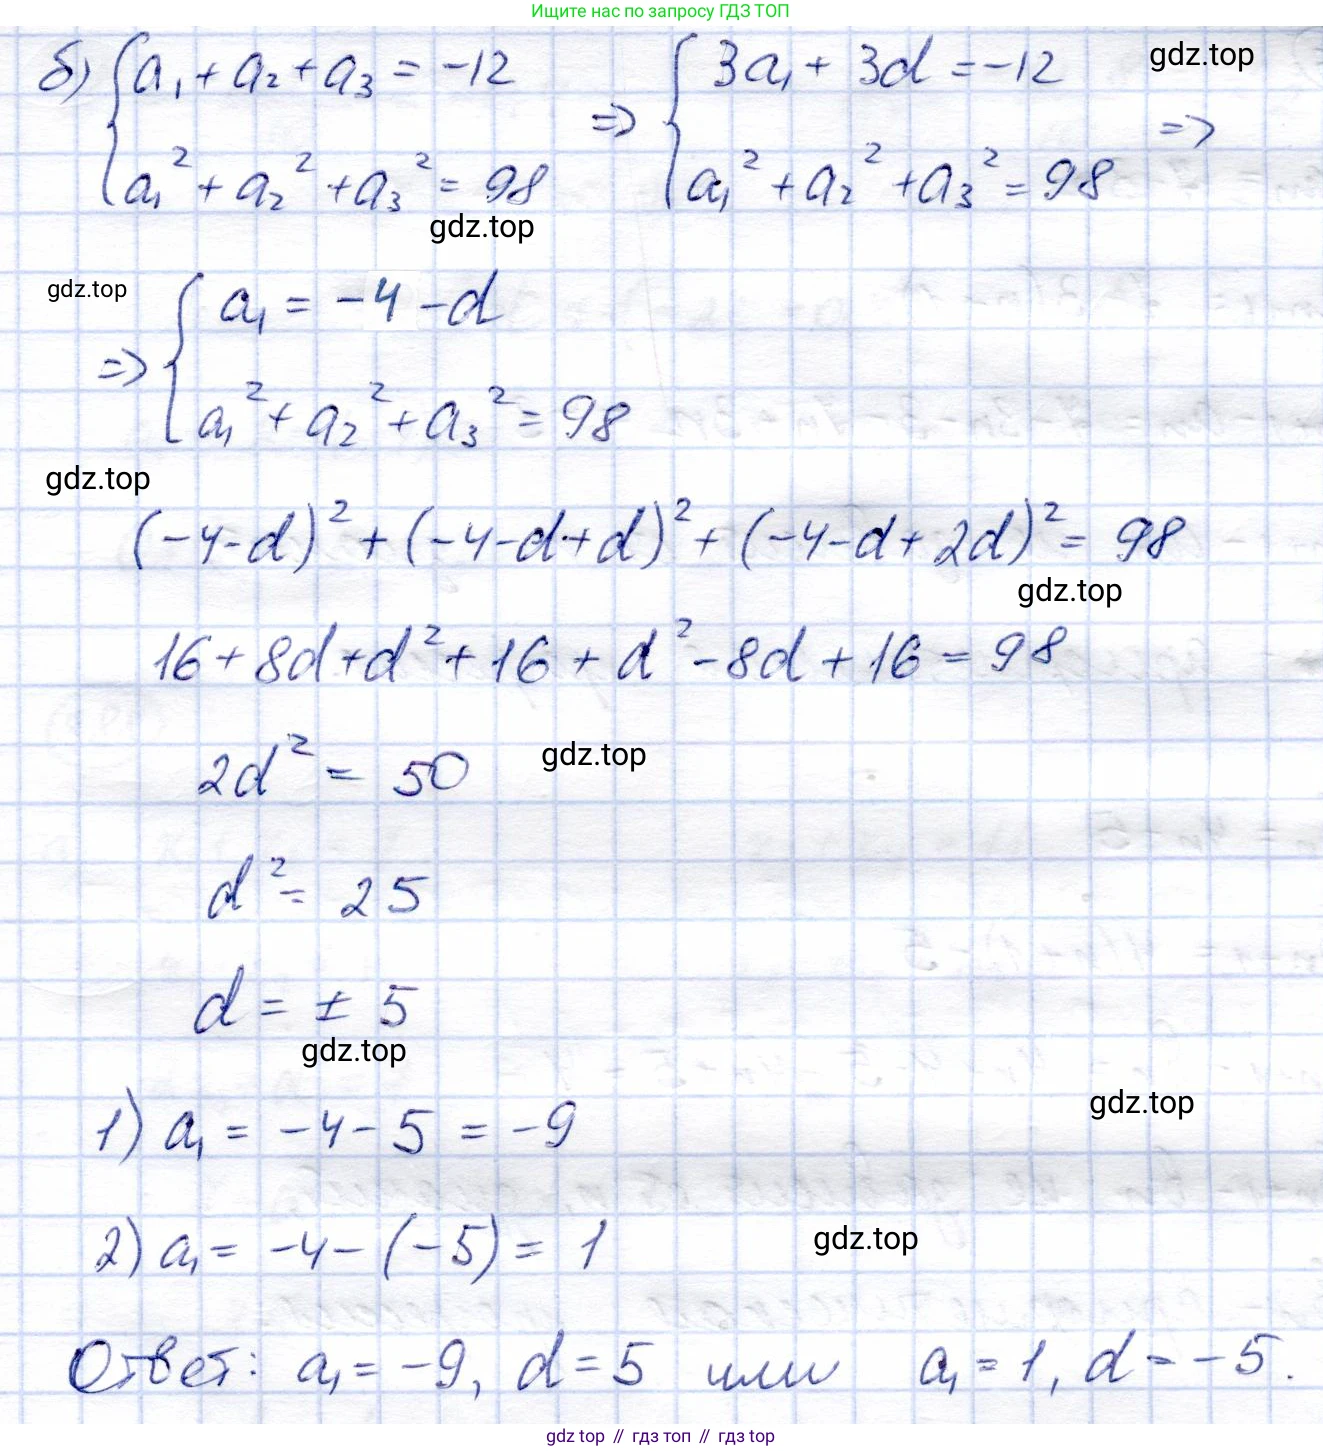 Ищите нас по запросу ГДЗ ТОП
б) { a₁ + a₂ + a₃ = -12 => { 3a₁ + 3d = -12 gdz.top
a₁² + a₂² + a₃² = 98 a₁² + a₂² + a₃² = 98 =>
gdz.top
gdz.top
=> { a₁ = -4 - d
a₁² + a₂² + a₃² = 98
gdz.top
(-4-d)² + (-4-d+d)² + (-4-d+2d)² = 98
gdz.top
16 + 8d + d² + 16 + d² - 8d + 16 = 98
2d² = 50 gdz.top
d² = 25
d = ± 5
gdz.top
gdz.top
1) a₁ = -4 - 5 = -9
2) a₁ = -4 - (-5) = 1 gdz.top
Ответ: a₁ = -9, d = 5 или a₁ = 1, d = -5.
gdz top // гдз топ // гдз top